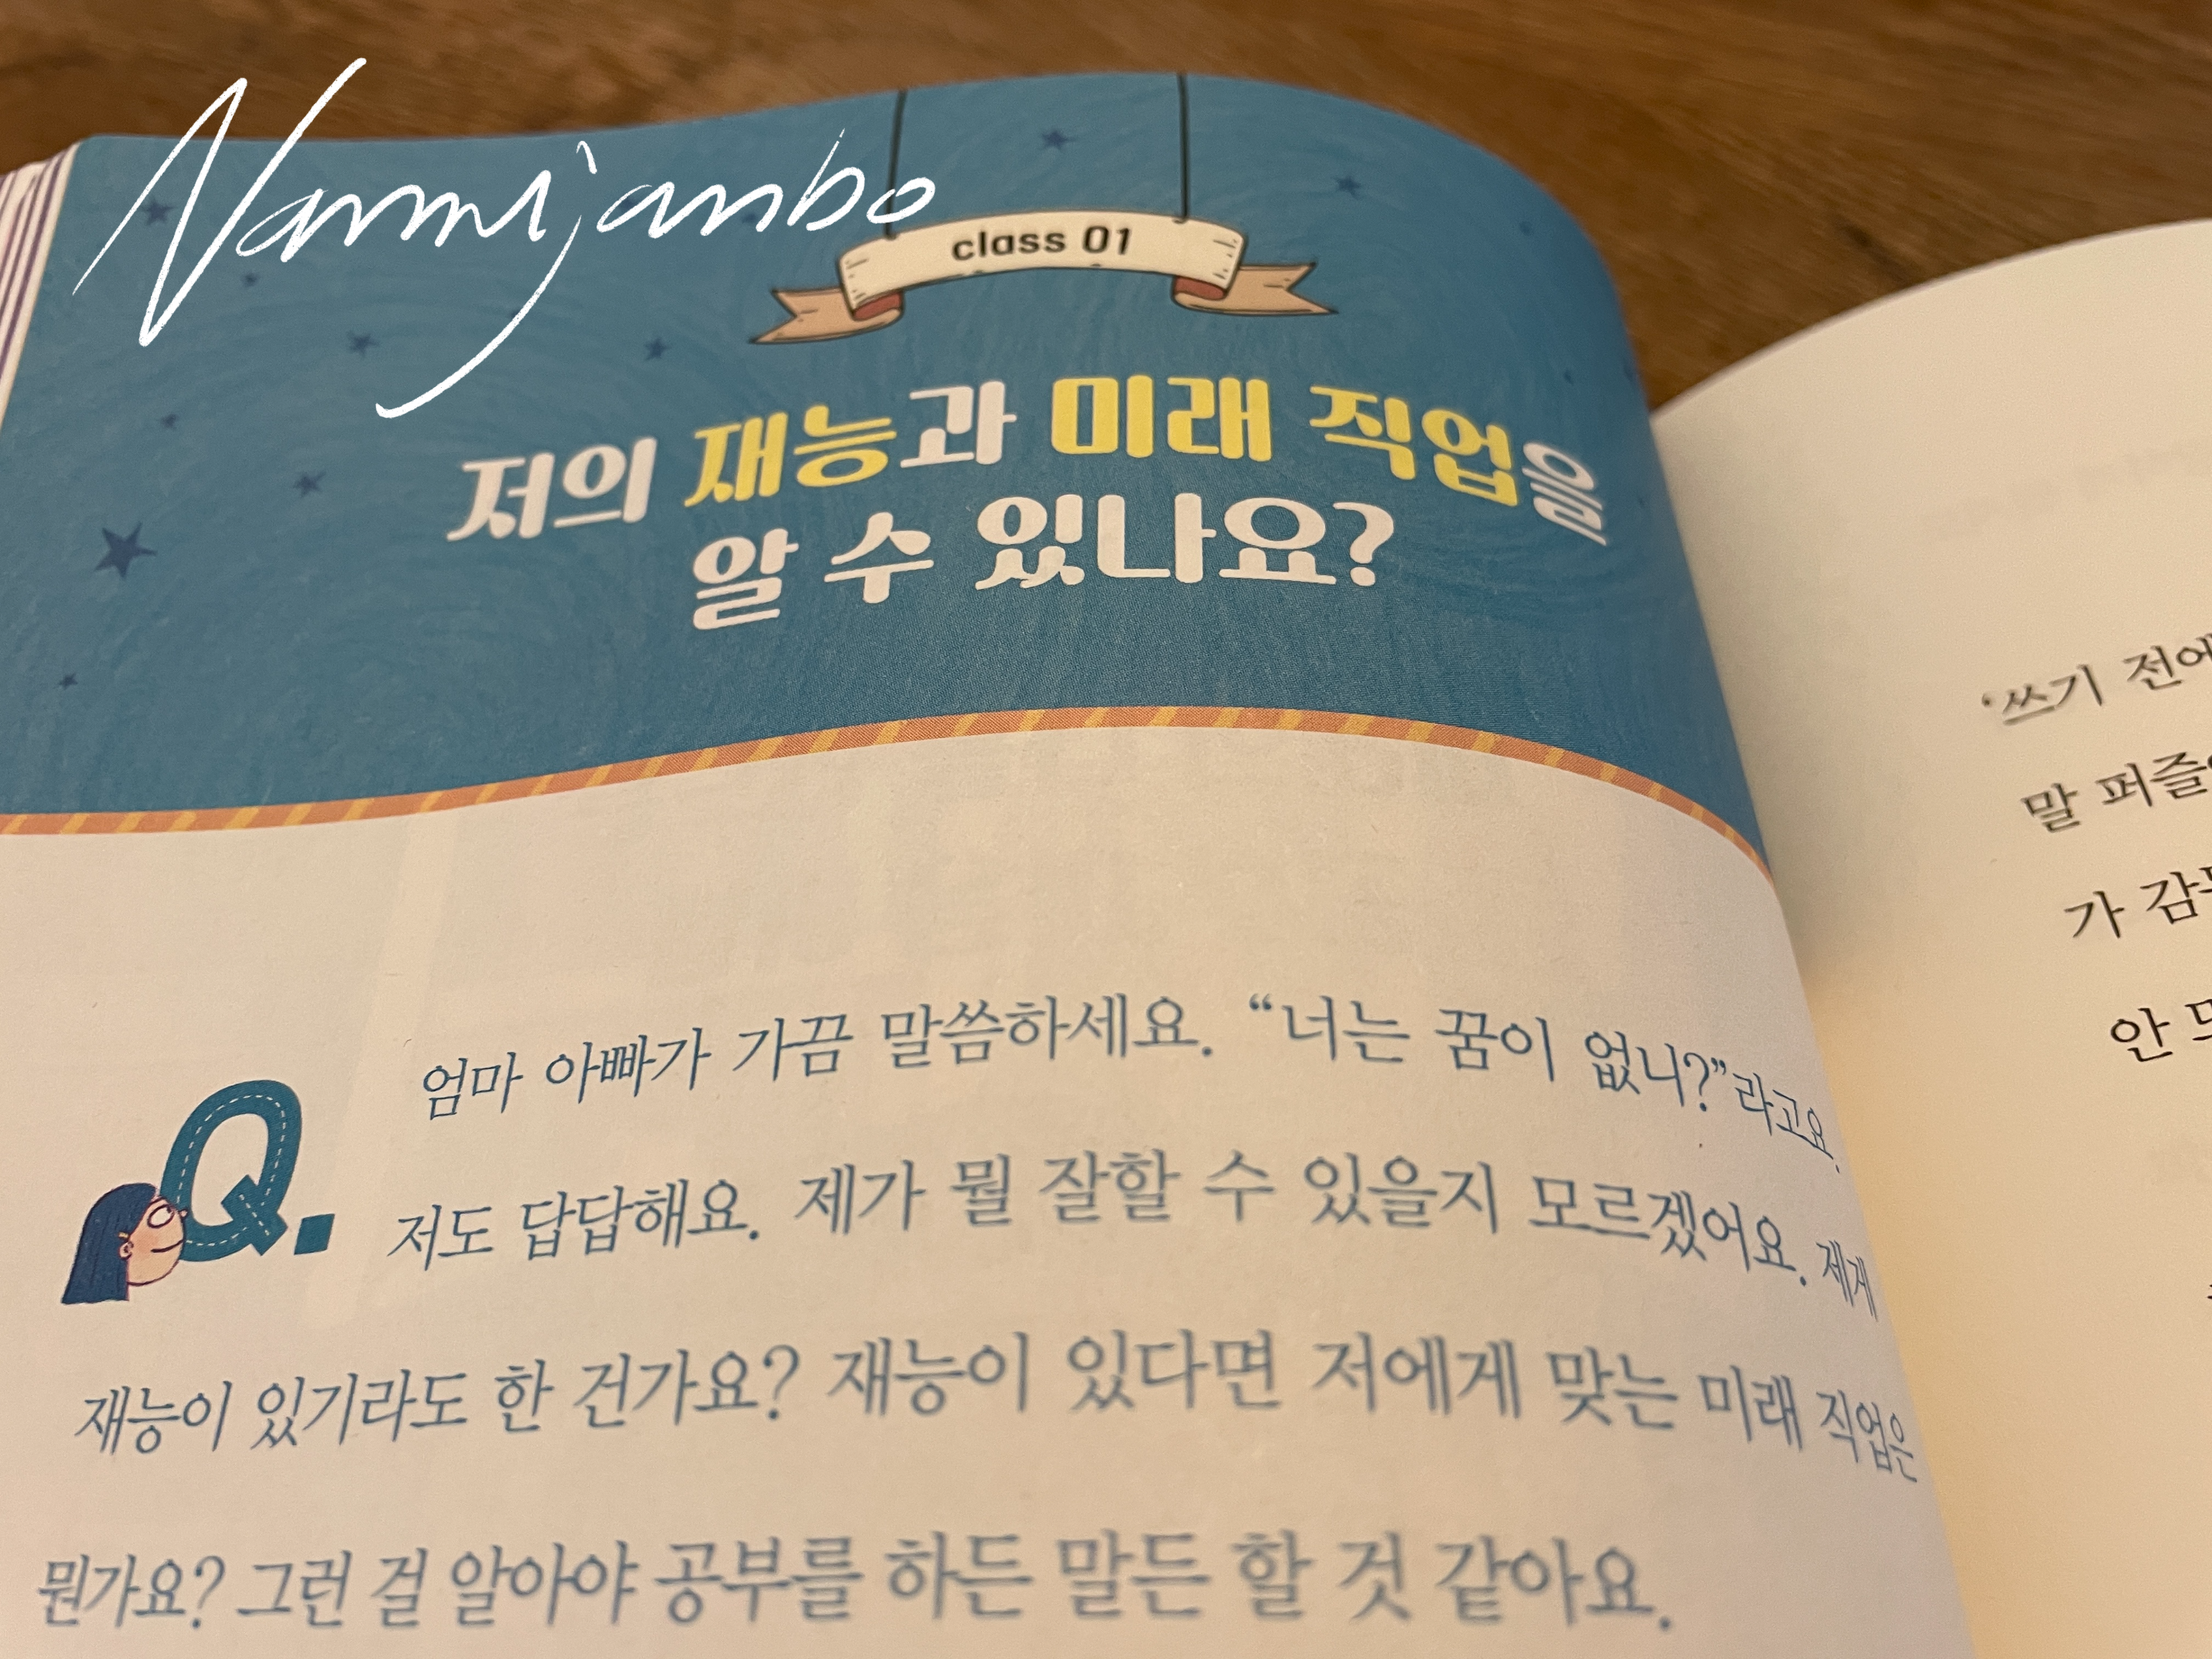 Nannijanbo
class 01
저의 재능과 미래 직업을
알 수 있나요?
Q.
엄마 아빠가 가끔 말씀하세요. “너는 꿈이 없니?”라고요.
저도 답답해요. 제가 뭘 잘할 수 있을지 모르겠어요. 제게
재능이 있기라도 한 건가요? 재능이 있다면 저에게 맞는 미래 직업은
뭔가요? 그런 걸 알아야 공부를 하든 말든 할 것 같아요.
‘쓰기 전에
말 퍼즐
가
안